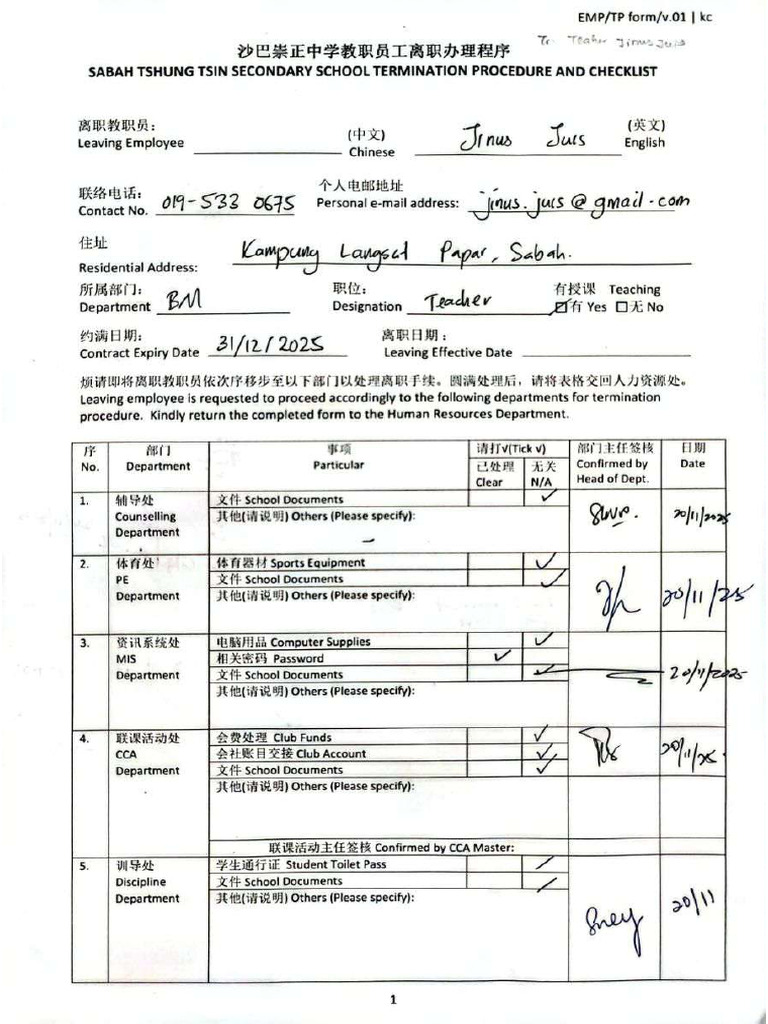 EMP/TP form/v.01 | kc
To Teacher Jinus Juis
沙巴崇正中学教职员工离职办理程序
SABAH TSHUNG TSIN SECONDARY SCHOOL TERMINATION PROCEDURE AND CHECKLIST
离职教职员: (中文) Jinus Juis (英文)
Leaving Employee Chinese English
联络电话: 个人电邮地址
Contact No. 019-533 0675 Personal e-mail address: jinus.juis@gmail.com
住址
Residential Address: Kampung Langsat Papar, Sabah.
所属部门: 职位: 有授课 Teaching
Department BM Designation Teacher ☑有 Yes ☐无 No
约满日期: 离职日期:
Contract Expiry Date 31/12/2025 Leaving Effective Date
烦请即将离职教职员依次序移步至以下部门以处理离职手续。圆满处理后，请将表格交回人力资源处。
Leaving employee is requested to proceed accordingly to the following departments for termination
procedure. Kindly return the completed form to the Human Resources Department.
序 部门 事项 请打√(Tick √) 部门主任签核 日期
No. Department Particular 已处理 无关 Confirmed by Date
Clear N/A Head of Dept.
1. 辅导处 文件 School Documents ✓
Counselling 其他(请说明) Others (Please specify): 20/11/2025
Department –
2. 体育处 体育器材 Sports Equipment ✓
PE 文件 School Documents ✓
Department 其他(请说明) Others (Please specify): 20/11/25
3. 资讯系统处 电脑用品 Computer Supplies ✓
MIS 相关密码 Password ✓
Department 文件 School Documents ✓ 20/11/2025
其他(请说明) Others (Please specify):
4. 联课活动处 会费处理 Club Funds ✓
CCA 会社账目交接 Club Account ✓ 20/11/25
Department 文件 School Documents ✓
其他(请说明) Others (Please specify):
联课活动主任签核 Confirmed by CCA Master:
5. 训导处 学生通行证 Student Toilet Pass ✓
Discipline 文件 School Documents ✓
Department 其他(请说明) Others (Please specify): 20/11
1